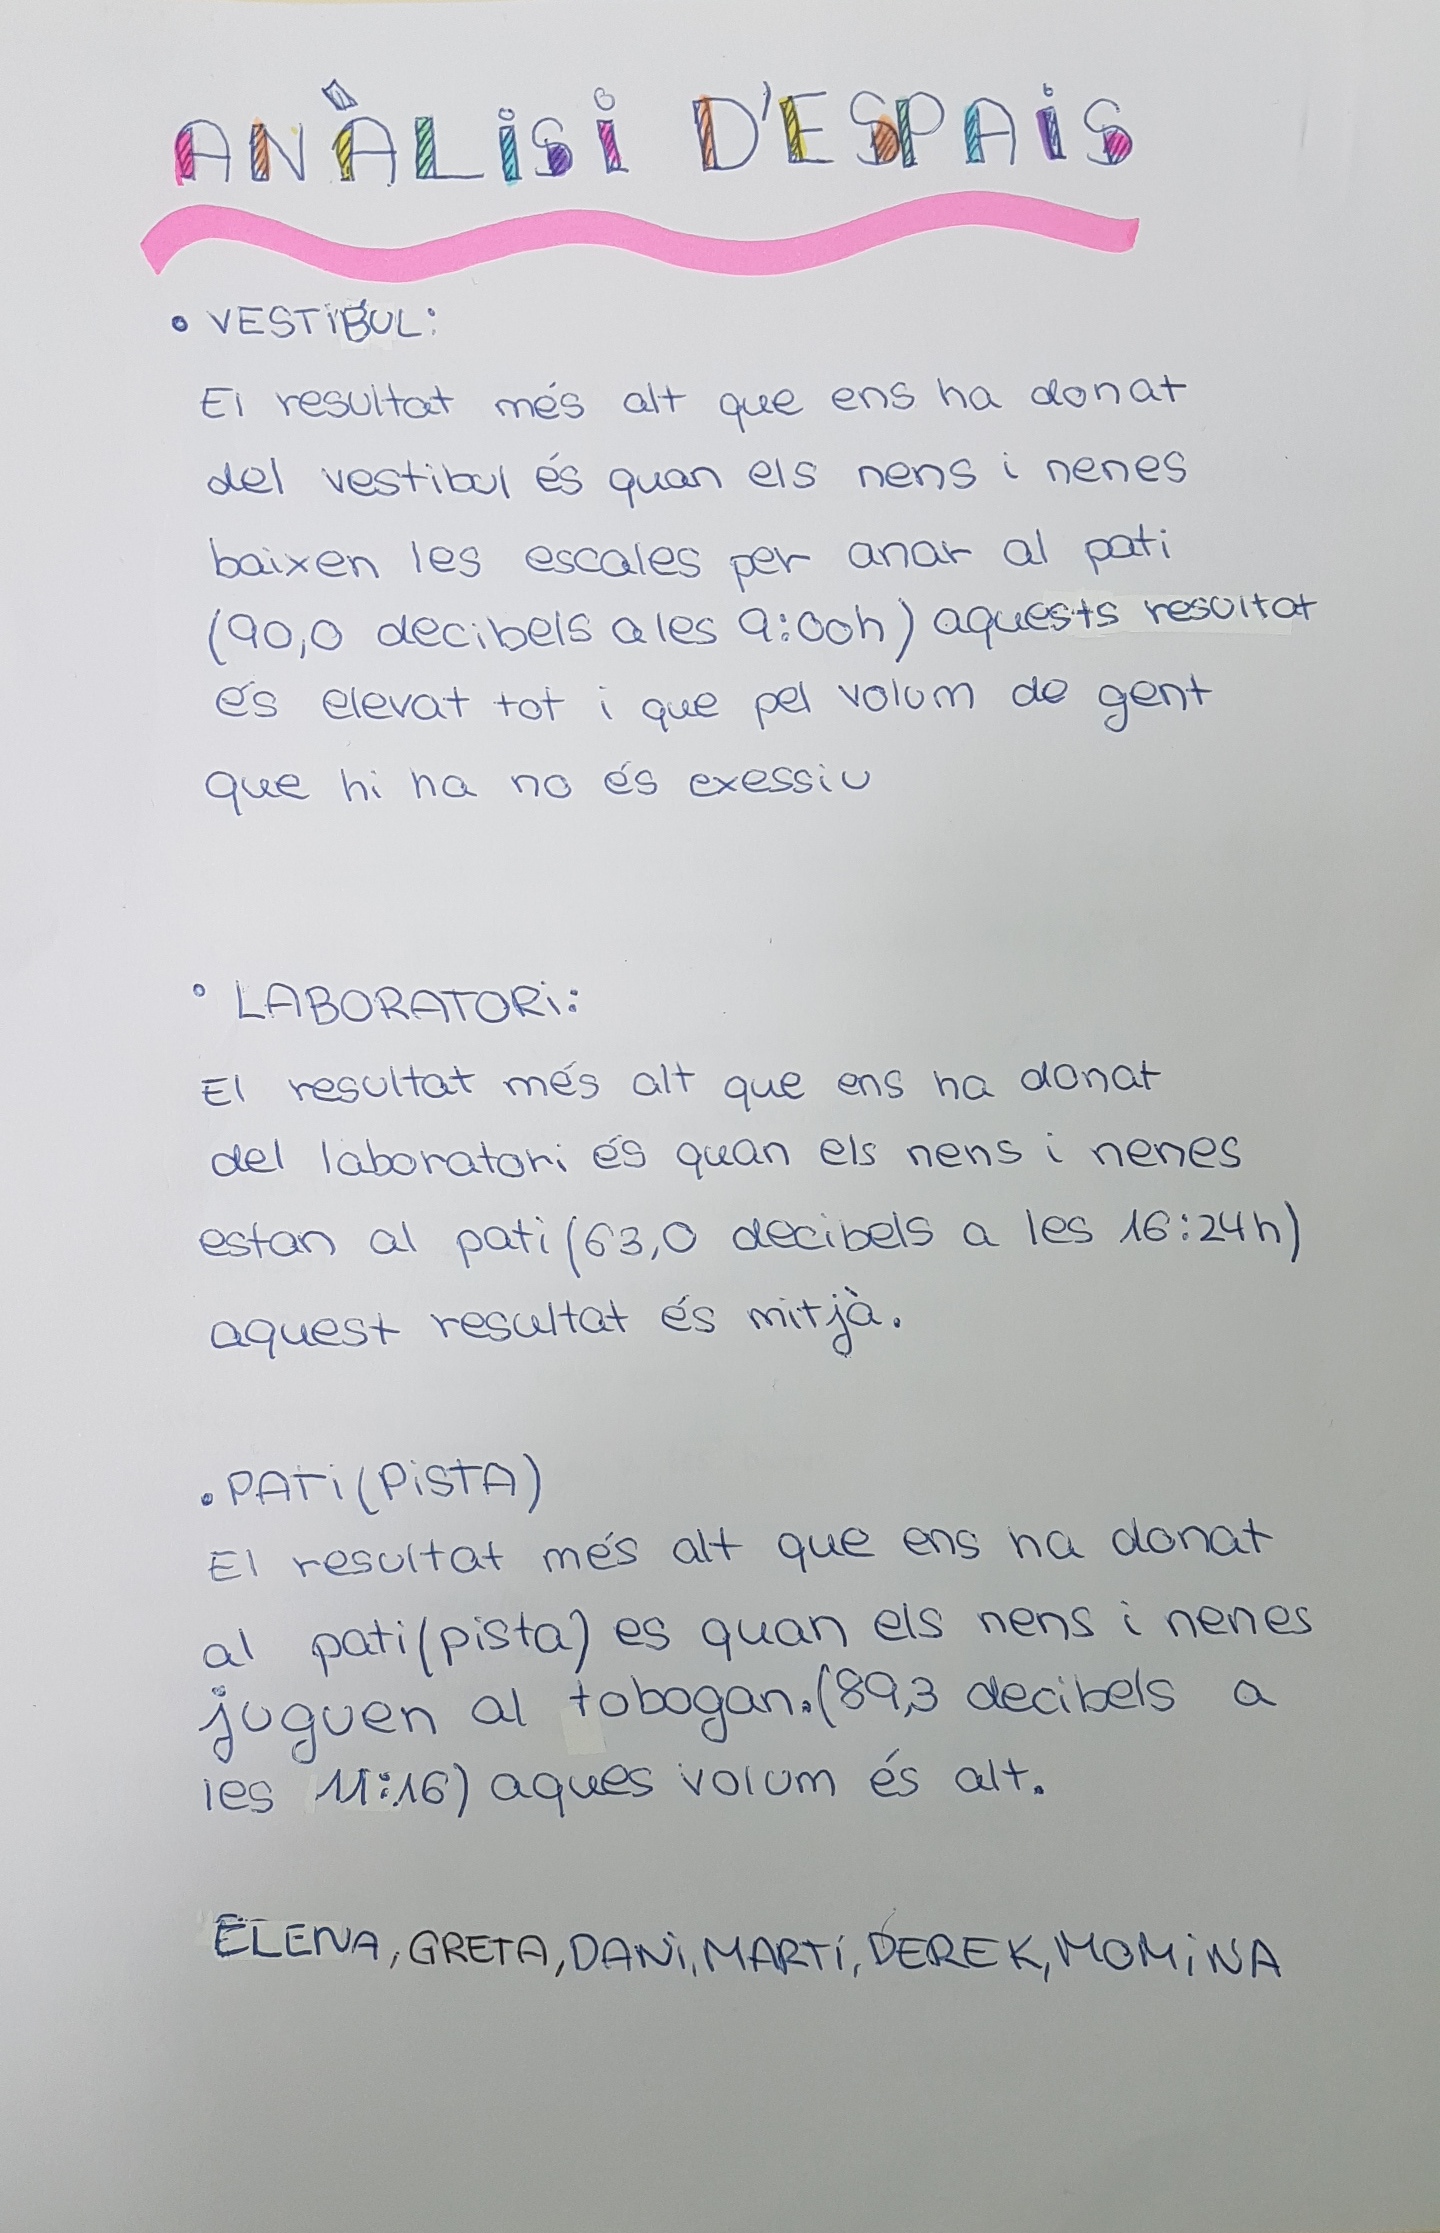 ANÀLiSi D'ESPAiS
• VESTiBUL:
El resultat més alt que ens ha donat
del vestibul és quan els nens i nenes
baixen les escales per anar al pati
(90,0 decibels a les 9:00h) aquests resultat
és elevat tot i que pel volum de gent
que hi ha no és exessiu
• LABORATORi:
El resultat més alt que ens ha donat
del laboratori és quan els nens i nenes
estan al pati (63,0 decibels a les 16:24h)
aquest resultat és mitjà.
• PATi (PiSTA)
El resultat més alt que ens ha donat
al pati (pista) es quan els nens i nenes
juguen al tobogan. (89,3 decibels a
les 11:16) aques volum és alt.
ELENA, GRETA, DANi, MARTí, DEREK, MOMiNA